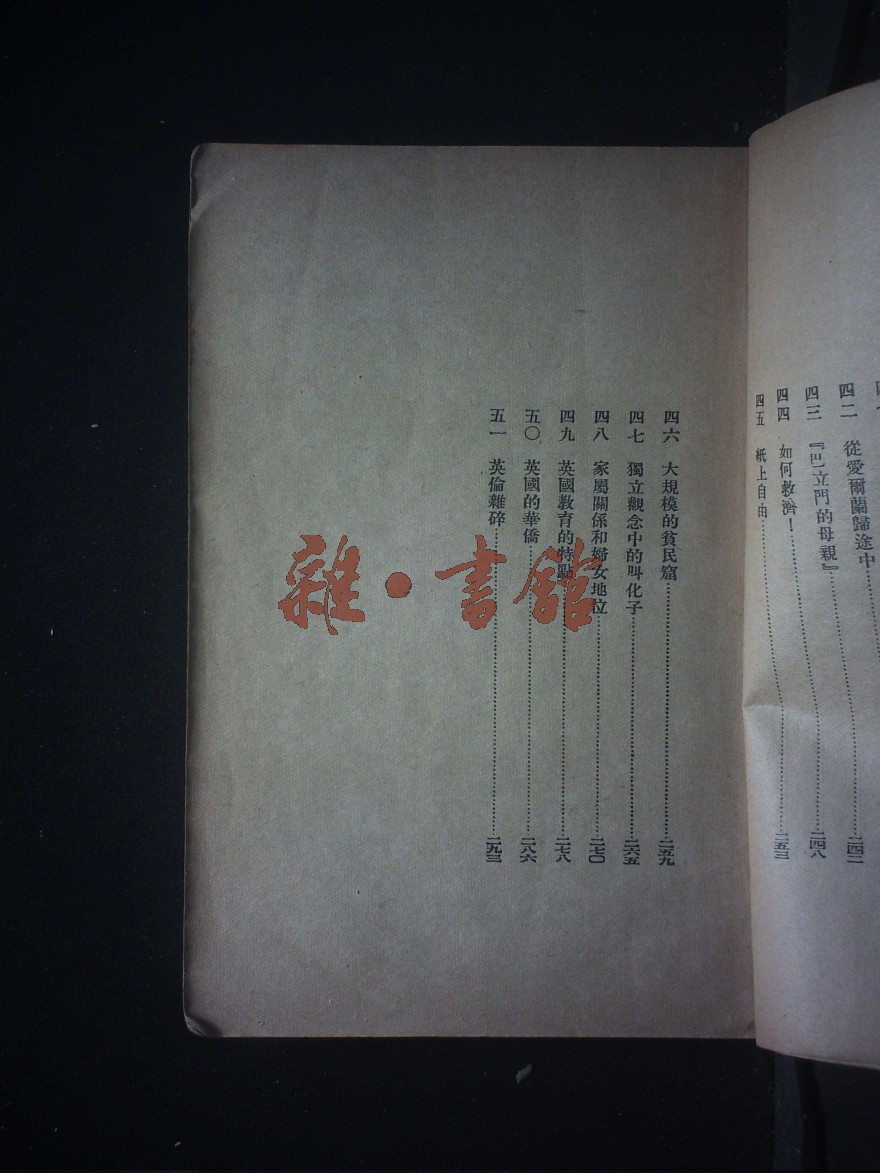 四二　從愛爾蘭歸途中……二四二
四三　『巴立門的母親』……二四八
四四　如何救濟！……二五三
四五　紙上自由……
四六　大規模的貧民窟……二五九
四七　獨立觀念中的叫化子……二六五
四八　家屬關係和婦女地位……二七〇
四九　英國教育的特點……二七八
五〇　英國的華僑……二八六
五一　英倫雜碎……二九三
雜·書館